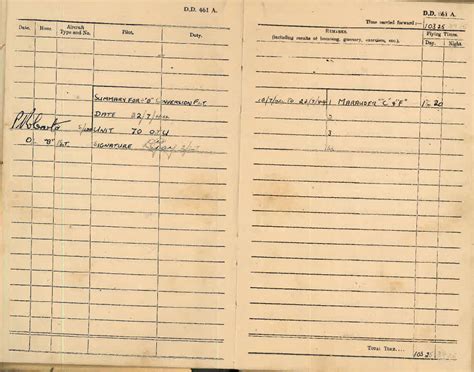 D.D. 661 A.
Date. Hour. Aircraft Type and No. Pilot. Duty.
SUMMARY FOR "B" CONVERSION FLT
DATE 22/7/44
UNIT 70 OTU
O. "B" FLT. SIGNATURE
D.D. 661 A.
Time carried forward:— 103.25
REMARKS
(including results of bombing, gunnery, exercises, etc.)
Flying Times.
Day. Night
MARAUDER "C" & "F" 1.20
2
3
TOTAL TIME....